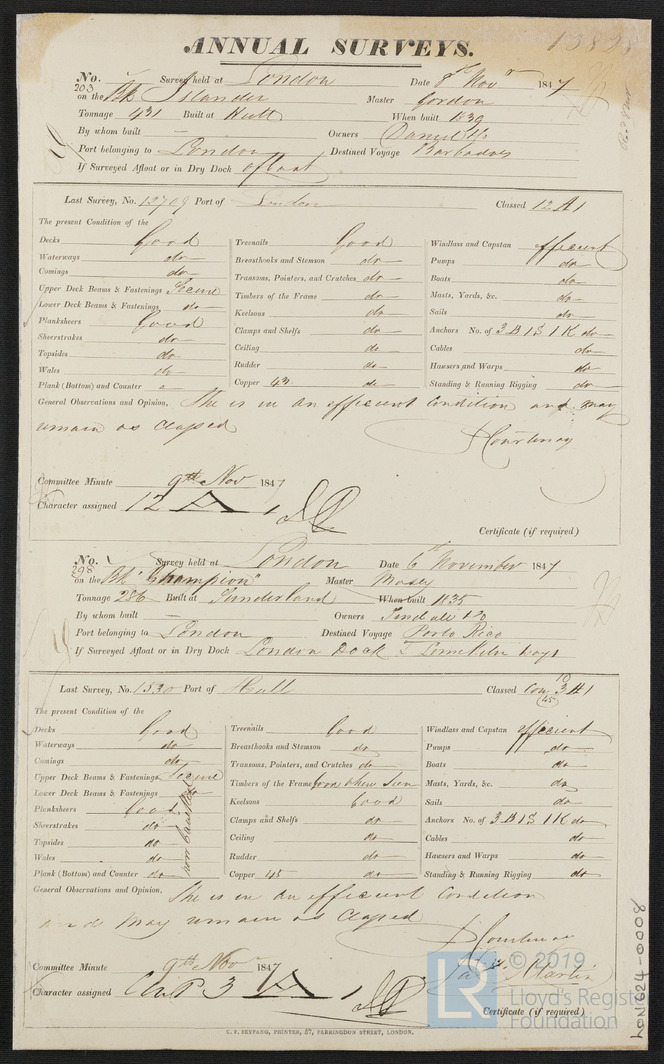 ANNUAL SURVEYS.
No. 203 Survey held at London Date 8th Novr 1847
on the Bk Islander Master Gordon
Tonnage 431 Built at Hull When built 1839
By whom built — Owners Daniel & Co
Port belonging to London Destined Voyage Barbadoes
If Surveyed Afloat or in Dry Dock afloat
Last Survey, No. 12709 Port of London Classed 12 A 1
The present Condition of the
Decks Good Treenails Good Windlass and Capstan efficient
Waterways do Breasthooks and Stemson do Pumps do
Comings do Transoms, Pointers, and Crutches do Boats do
Upper Deck Beams & Fastenings Secure Timbers of the Frame do Masts, Yards, &c. do
Lower Deck Beams & Fastenings do Keelsons do Sails do
Planksheers Good Clamps and Shelfs do Anchors No. of 3 B 1 S 1 K do
Sheerstrakes do Ceiling do Cables do
Topsides do Rudder do Hawsers and Warps do
Wales do Copper 43 do Standing & Running Rigging do
Plank (Bottom) and Counter
General Observations and Opinion, She is in an efficient Condition and may
remain as classed
Courtenay
Committee Minute 9th Nov 1847
Character assigned 12 A 1
Certificate (if required)
No. 298 Survey held at London Date 6th November 1847
on the Bk "Champion" Master Mosey
Tonnage 286 Built at Sunderland When built 1835
By whom built — Owners Tindall & Co
Port belonging to London Destined Voyage Porto Rico
If Surveyed Afloat or in Dry Dock London Dock & Limekiln Dock
Last Survey, No. 1530 Port of Hull Classed Con 3 A 1
10
(45)
The present Condition of the
Decks Good Treenails Good Windlass and Capstan efficient
Waterways do Breasthooks and Stemson do Pumps do
Comings do Transoms, Pointers, and Crutches do Boats do
Upper Deck Beams & Fastenings Secure Timbers of the Frame Good where Seen Masts, Yards, &c. do
Lower Deck Beams & Fastenings do Keelsons Good Sails do
Planksheers Good Clamps and Shelfs do Anchors No. of 3 B 1 S 1 K do
Sheerstrakes do Ceiling do Cables do
Topsides do Rudder do Hawsers and Warps do
Wales do Copper 45 do Standing & Running Rigging do
Plank (Bottom) and Counter do
now caulked
General Observations and Opinion, She is in an efficient Condition
and may remain as classed
Courtenay
Martin
Committee Minute 9th Nov 1847
Character assigned Con 3 A 1
Certificate (if required)
C. F. SEYFANG, PRINTER, 57, FARRINGDON STREET, LONDON.
LON 624-0008
LR © 2019
Lloyd's Register
Foundation